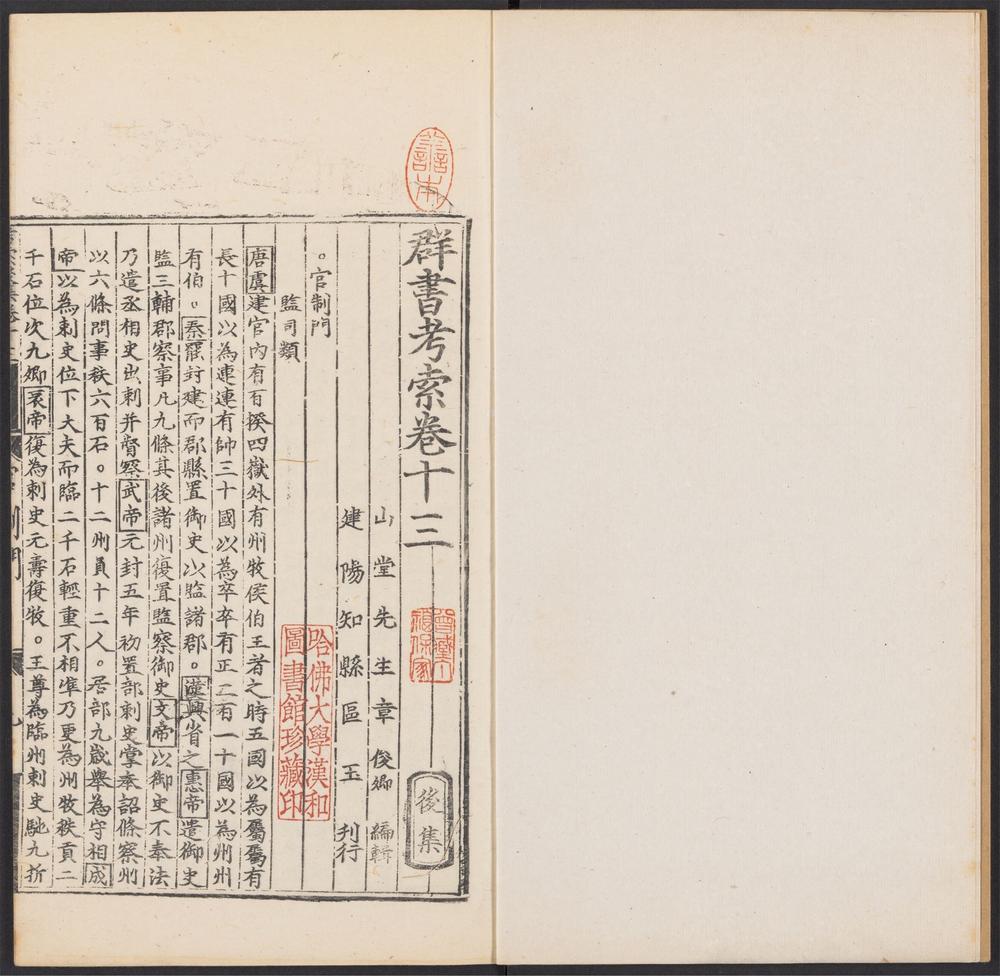 善本
群書考索卷十三
後集
山堂先生章俊卿編輯
建陽知縣區玉刊行
哈佛大學漢和
圖書館珍藏印
○官制門
監司類
唐虞建官內有百揆四嶽外有州牧侯伯王者之時五國以為屬屬有
長十國以為連連有帥三十國以為卒卒有正二百一十國以為州州
有伯○秦罷封建而郡縣置御史以監諸郡○漢興省之惠帝遣御史
監三輔郡察事凡九條其後諸州復置監察御史文帝以御史不奉法
乃遣丞相史出刺并督察武帝元封五年初置部刺史掌奉詔條察州
以六條問事秩六百石○十二州員十二人○居部九歲舉為守相成
帝以為刺史位下大夫而臨二千石輕重不相準乃更為州牧秩真二
千石位次九卿哀帝復為刺史元壽復牧○王尊為臨州刺史馳九折